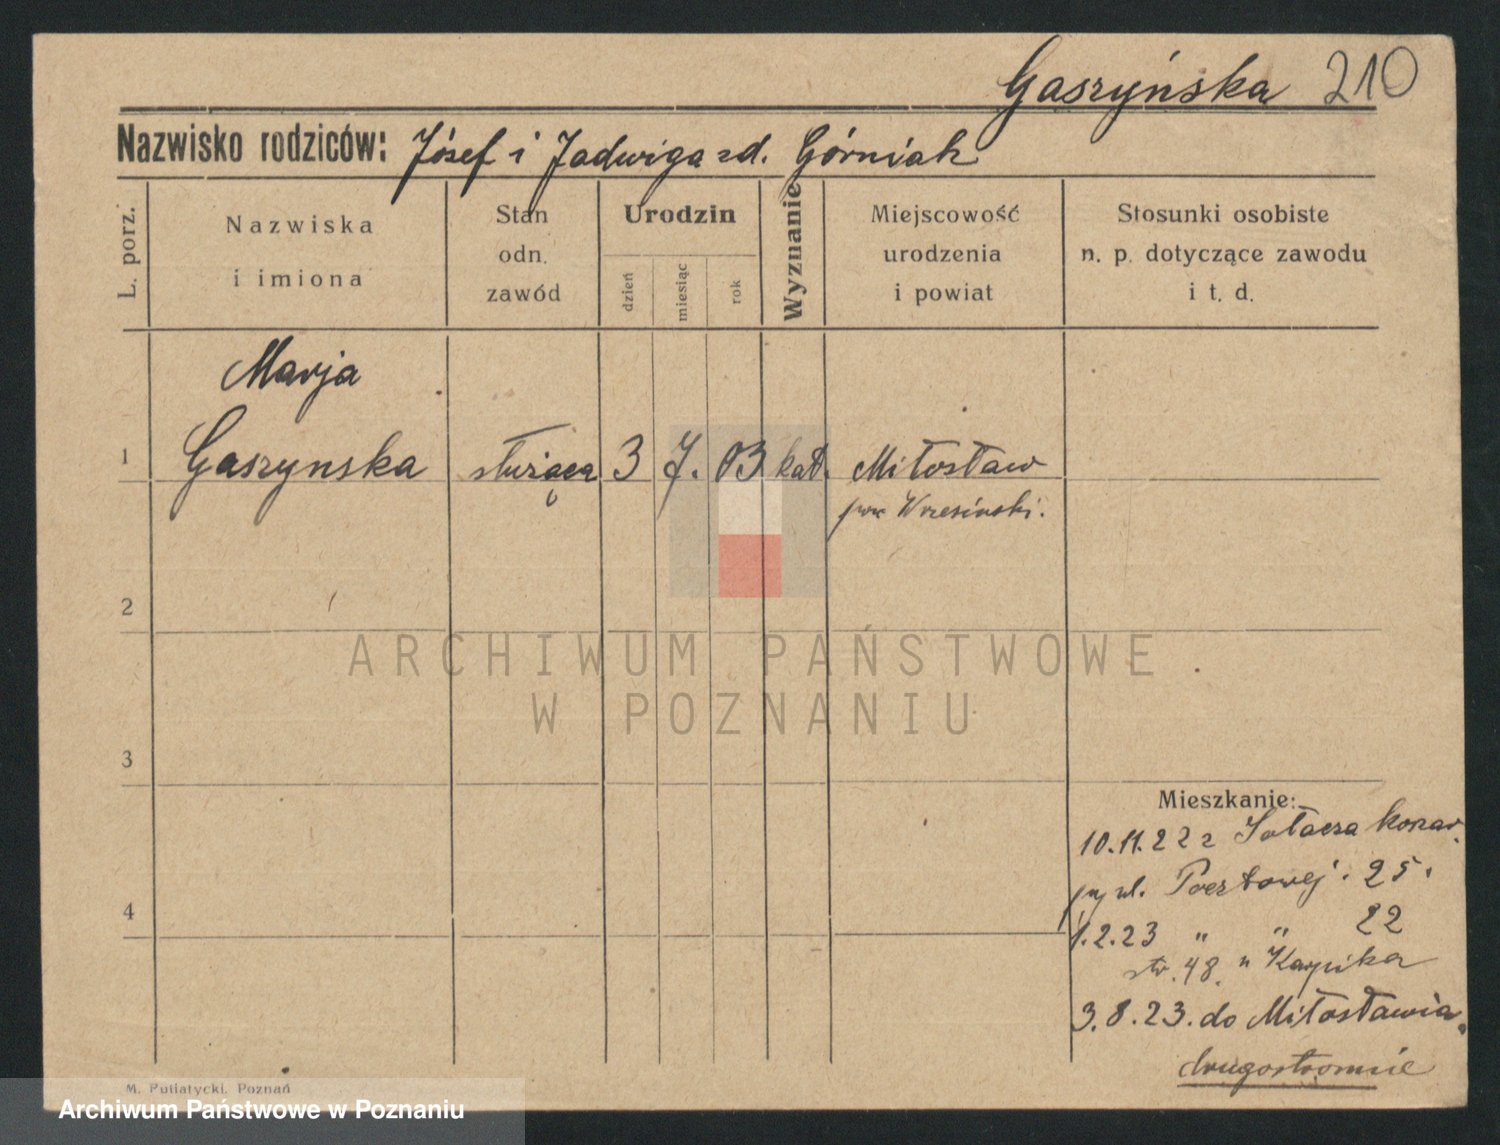 Gaszyńska 210
Nazwisko rodziców: Józef i Jadwiga zd. Górniak
L. porz.
Nazwiska
i imiona
Stan
odn.
zawód
Urodzin
dzień
miesiąc
rok
Wyznanie
Miejscowość
urodzenia
i powiat
Stosunki osobiste
n. p. dotyczące zawodu
i t. d.
Marja
1 Gaszynska służąca 3 7. 03 kat. Miłosław
pow Wrzesiński.
2
ARCHIWUM PAŃSTWOWE
W POZNANIU
3
Mieszkanie:
10.11.22 z Sołacza
ul. Pocztowej. 25.
4
1.2.23 " " 22
str. 48. u Karpika
3.8.23. do Miłosławia.
drugostronnie
M. Putiatycki, Poznań
Archiwum Państwowe w Poznaniu